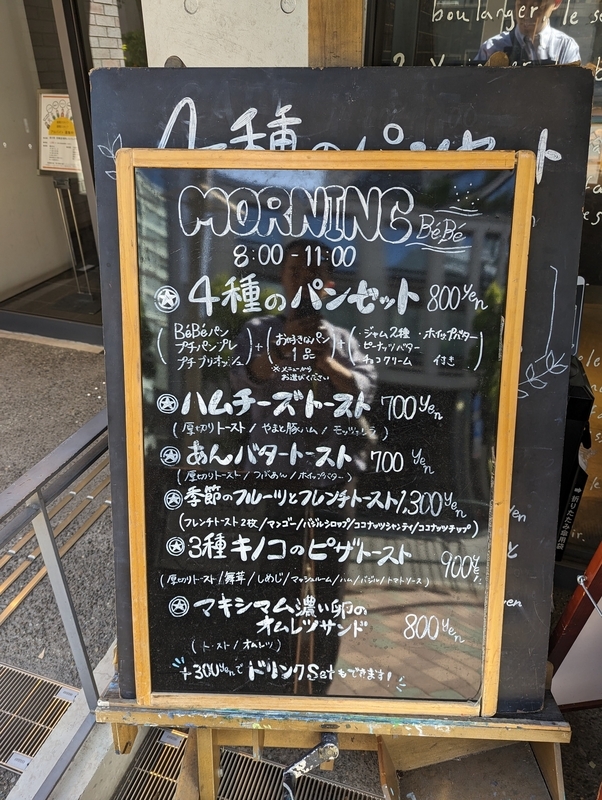 boulanger le s
4種のパンセット
MORNING BéBé
8:00 - 11:00
4種のパンセット 800yen
(BéBéパン プチパンプレ プチブリオッシュ) + (お好きなパン 1品) + (・ジャム2種 ・ホイップバター ・ピーナッツバター ・チョコクリーム 付き)
※メニューから
お選びください
ハムチーズトースト 700yen
(厚切りトースト / やまと豚ハム / モッツァレラ)
あんバタートースト 700yen
(厚切りトースト / つぶあん / ホイップバター)
季節のフルーツとフレンチトースト 1,300yen
(フレンチトースト2枚 / マンゴー / バジルシロップ / ココナッツシャンティ / ココナッツチップ)
3種キノコのピザトースト 900yen
(厚切りトースト / 舞茸 / しめじ / マッシュルーム / ハム / バジル / トマトソース)
マキシマム濃い卵の
オムレツサンド 800yen
(トースト / オムレツ)
+300yenで ドリンクSetもできます!
折りたたみ傘用袋